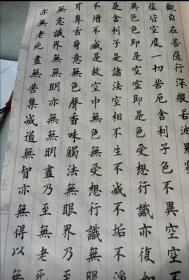 觀自在菩薩行深般若波羅
蘊皆空度一切苦厄舍利子色不異空空
色即是空空即是色受想行識亦復如
是舍利子是諸法空相不生不滅不垢不
不增不減是故空中無色無受想行識無
耳鼻舌身意無色聲香味觸法無眼界乃
無意識界無無明亦無無明盡乃至無老
亦無老死盡無苦集滅道無智亦無得以無